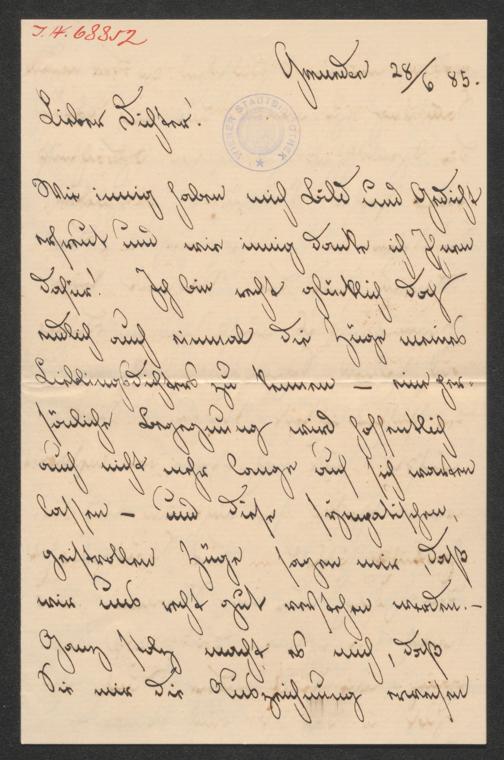 J.N. 68852
Gmunden 28/6 85.
Lieber Dichter!
WIENER STADTBIBLIOTHEK
Wie innig haben mich Bild und Gedicht
erfreut und wie innig danke ich Ihnen
dafür! Ich bin recht glücklich daß
endlich auch einmal die Züge meines
Lieblingsdichters zu kennen – eine per-
sönliche Begegnung wird hoffentlich
auch nicht mehr lange auf sich warten
lassen – und diese sympatischen,
geistvollen Züge sagen mir, daß
wir uns recht gut verstehen werden. –
Ganz stolz macht es mich, daß
Sie mir die Auszeichnung erweisen